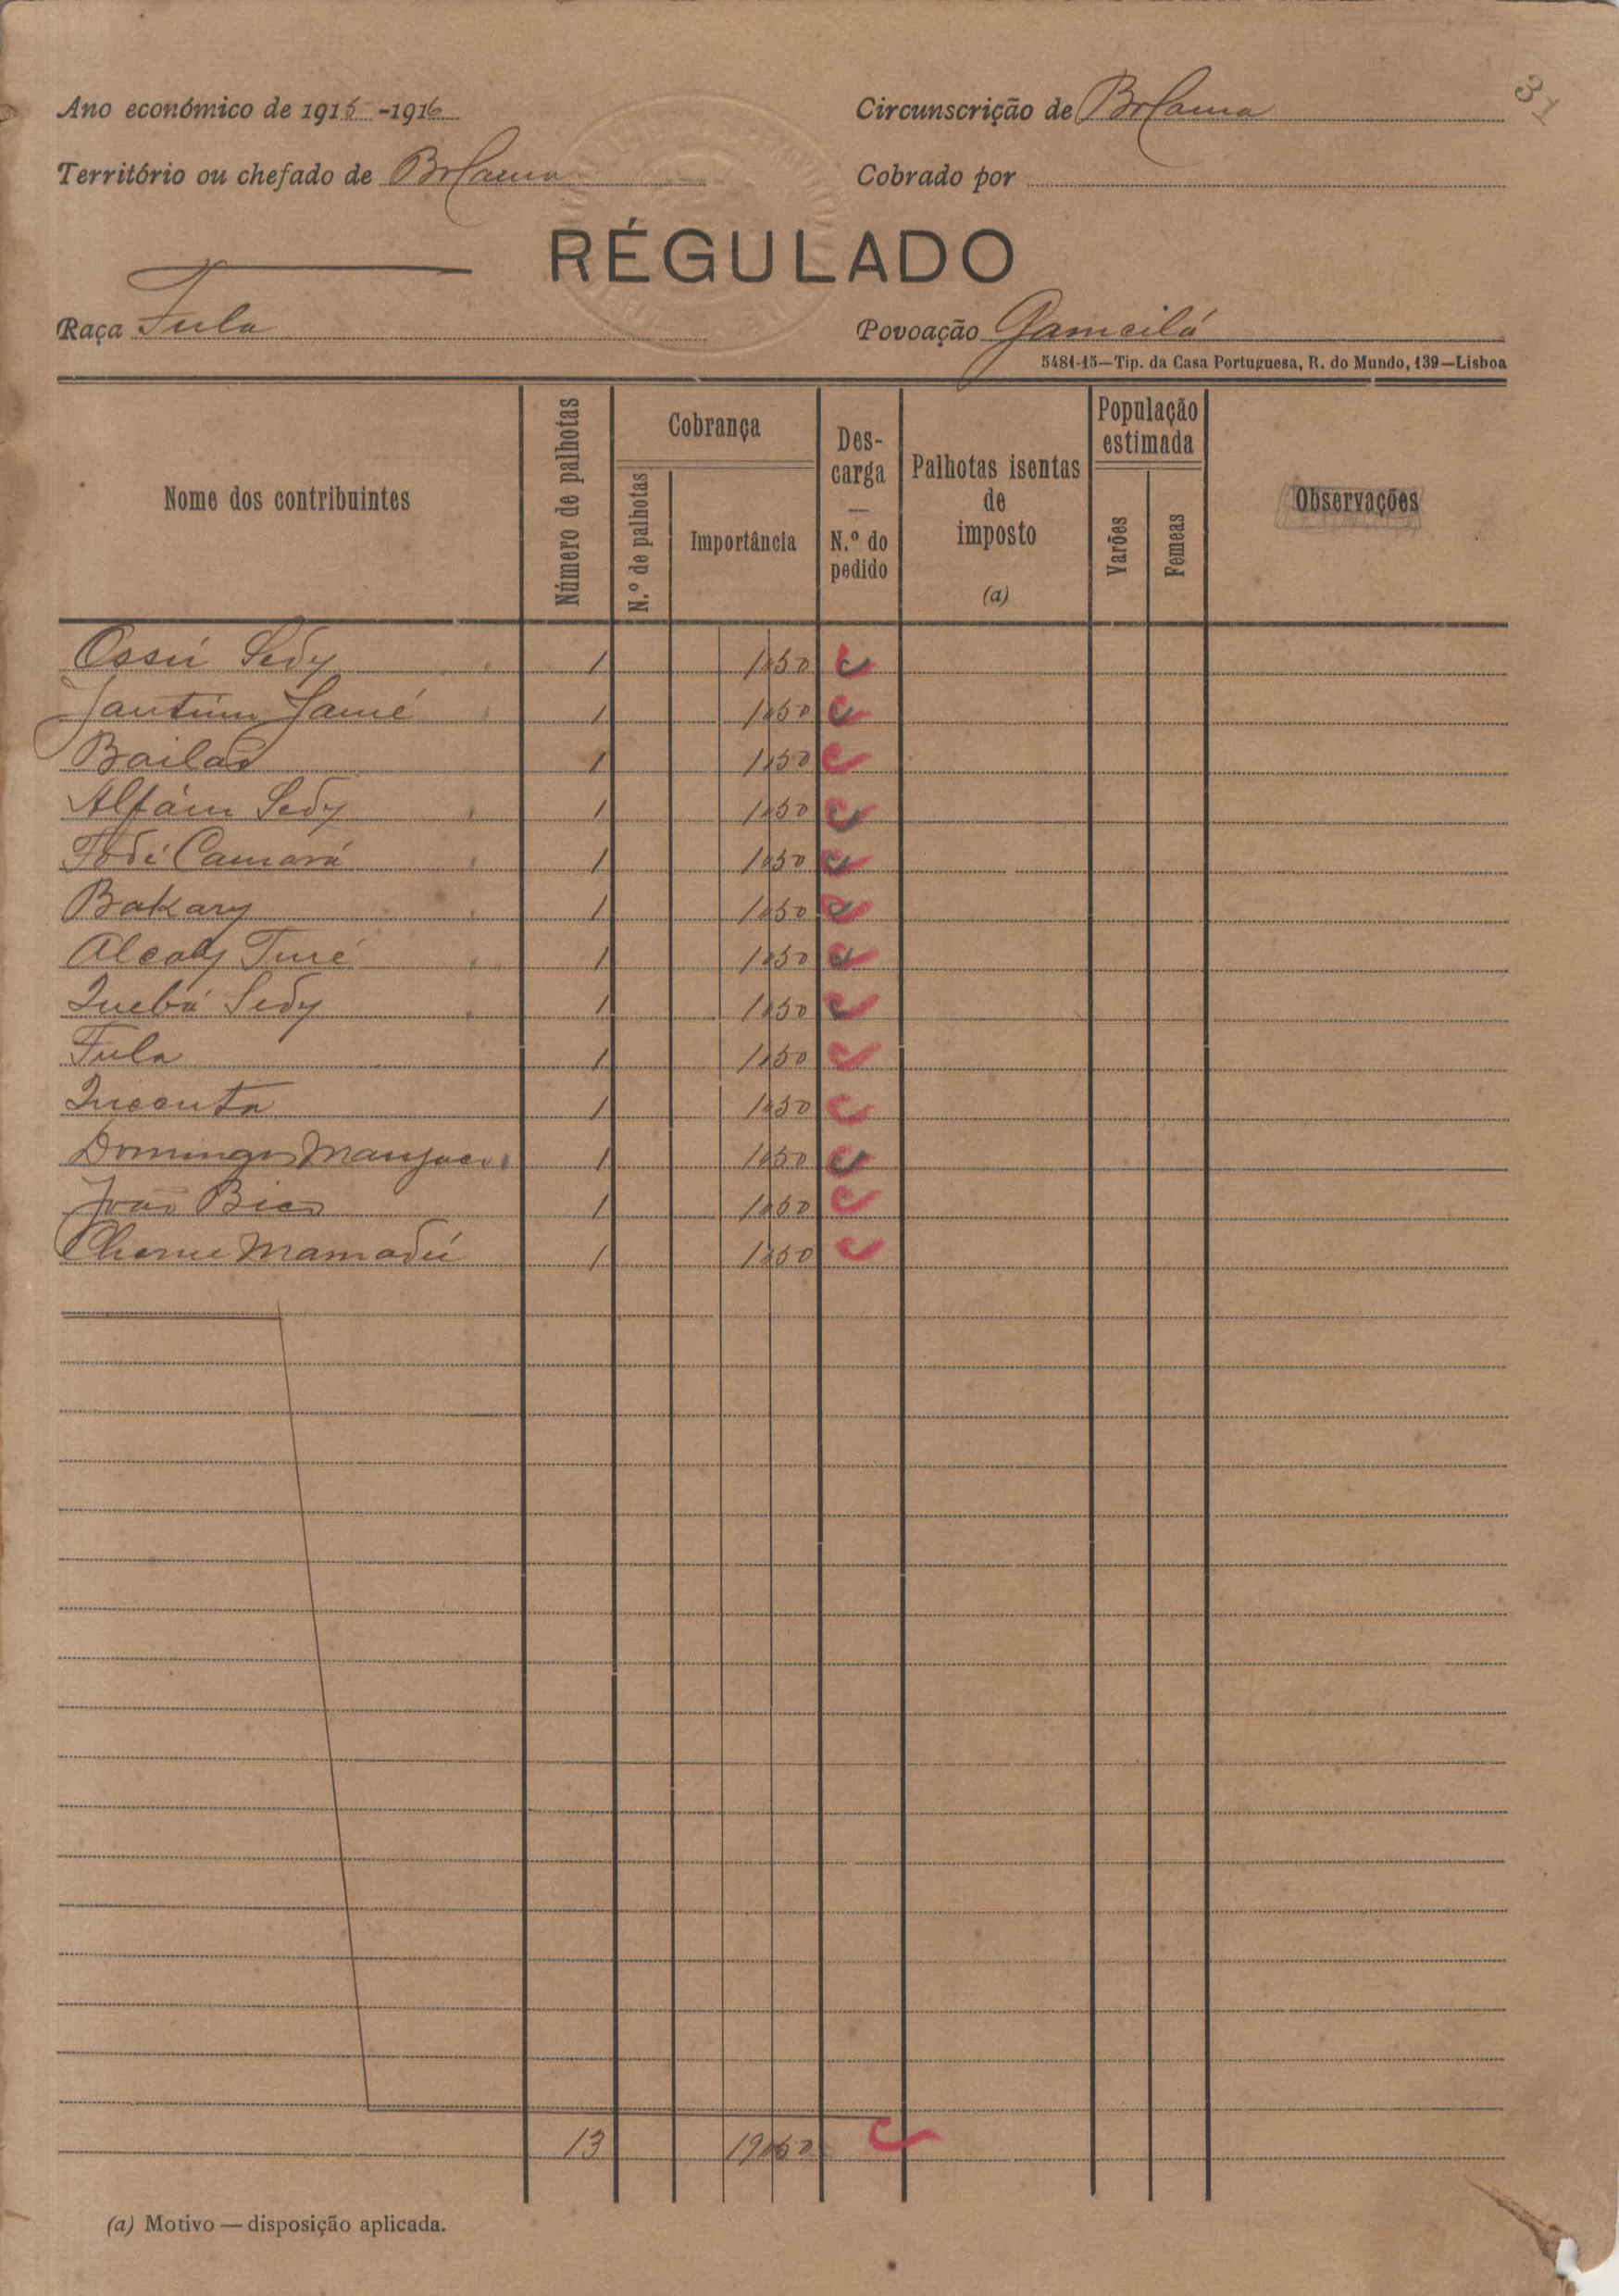 31
Ano económico de 1915-1916 Circunscrição de Bolama
Território ou chefado de Bolama Cobrado por
RÉGULADO
Raça Fula Povoação Gameilá
5481-15—Tip. da Casa Portuguesa, R. do Mundo, 139—Lisboa
Nome dos contribuintes Número de palhotas Cobrança N.º de palhotas Importância Descarga — N.º do pedido Palhotas isentas de imposto (a) População estimada Varões Femeas Observações
Ossú Sedy 1 1$50
Jantim Jamé 1 1$50
Bailad 1 1$50
Alfám Sedy 1 1$50
Fodé Camará 1 1$50
Bakary 1 1$50
Alcaly Turé 1 1$50
Quebá Sedy 1 1$50
Fula 1 1$50
1 1$50
Domingos Manjaco 1 1$50
João Bico 1 1$50
Cherne Mamadú 1 1$50
13 19$50
(a) Motivo — disposição aplicada.